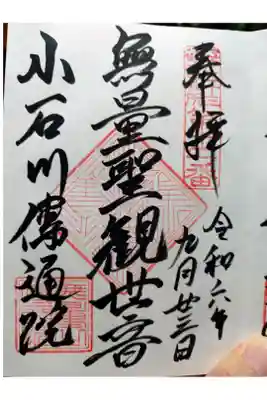 奉拝
令和六年
九月廿三日
無量聖観世音
小石川傳通院